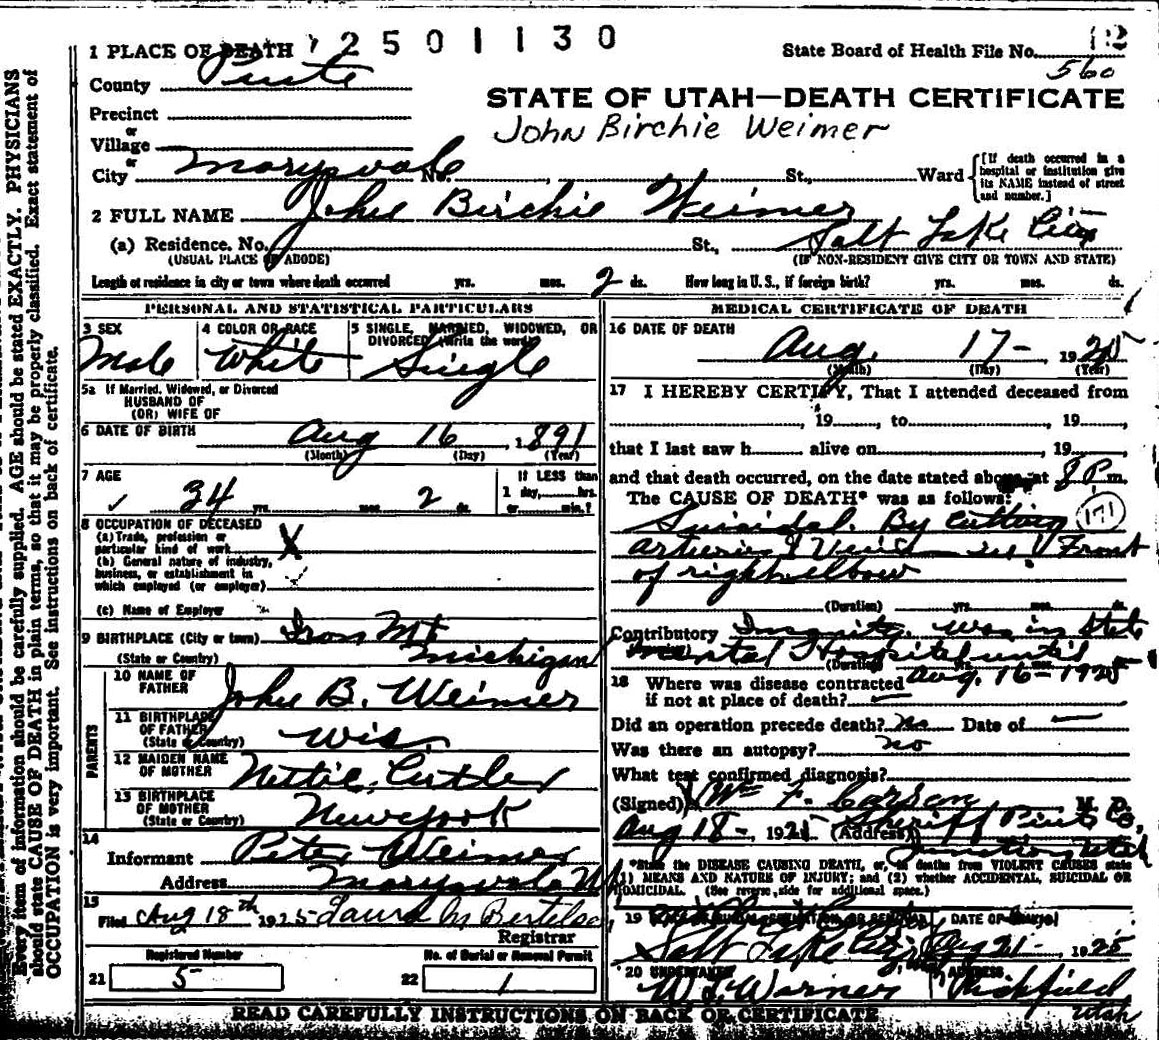 1 PLACE OF DEATH 2501130 State Board of Health File No. 12
County Piute 560
Precinct
or
STATE OF UTAH—DEATH CERTIFICATE
John Birchie Weimer
Village
or
City Marysvale No. , St., Ward [If death occurred in a hospital or institution give its NAME instead of street and number.]
2 FULL NAME John Birchie Weimer
(a) Residence. No. St., Salt Lake City
(USUAL PLACE OF ABODE) (IF NON-RESIDENT GIVE CITY OR TOWN AND STATE)
Length of residence in city or town where death occurred yrs. mos. 2 ds. How long in U. S., if foreign birth? yrs. mos. ds.
PERSONAL AND STATISTICAL PARTICULARS
3 SEX 4 COLOR OR RACE 5 SINGLE, MARRIED, WIDOWED, OR DIVORCED (Write the word)
Male White Single
5a If Married, Widowed, or Divorced
HUSBAND OF
(OR) WIFE OF
6 DATE OF BIRTH Aug 16, 1891
(Month) (Day) (Year)
7 AGE If LESS than
34 yrs. mos. 2 ds. 1 day, hrs.
or min.?
8 OCCUPATION OF DECEASED
(a) Trade, profession or
particular kind of work X
(b) General nature of industry,
business, or establishment in
which employed (or employer)
(c) Name of Employer
9 BIRTHPLACE (City or town) Iron Mt
(State or Country) Michigan
PARENTS
10 NAME OF
FATHER John B. Weimer
11 BIRTHPLACE
OF FATHER
(State or Country) Wis.
12 MAIDEN NAME
OF MOTHER Nettie Cutler
13 BIRTHPLACE
OF MOTHER
(State or Country) New York
14
Informant Peter Weimer
Address Marysvale
15
Filed Aug 18th 1925 Laura M Bertelsen
Registrar
Registered Number No. of Burial or Removal Permit
21 5 22 1
MEDICAL CERTIFICATE OF DEATH
16 DATE OF DEATH
Aug. 17- 1925
(Month) (Day) (Year)
17 I HEREBY CERTIFY, That I attended deceased from
, 19 , to , 19 ,
that I last saw h alive on , 19 ,
and that death occurred, on the date stated above, at 8 P. m.
The CAUSE OF DEATH* was as follows:
Suicidal. By Cutting 171
arteries & Veins in Front
of right elbow
(Duration) yrs. mos. ds.
Contributory Insanity. Was in State
Mental Hospital until
(Duration) yrs. mos.
Aug. 16-1925
18 Where was disease contracted
if not at place of death?
Did an operation precede death? No Date of
Was there an autopsy? no
What test confirmed diagnosis?
(Signed) Wm F. Carson, M. D.
Aug 18-, 1925 (Address) Sheriff Piute Co,
Junction Utah
*State the DISEASE CAUSING DEATH, or, in deaths from VIOLENT CAUSES state
(1) MEANS AND NATURE OF INJURY; and (2) whether ACCIDENTAL, SUICIDAL OR
HOMICIDAL. (See reverse side for additional space.)
19 DATE OF
Salt Lake City Aug 21- 1925
20 UNDERTAKER ADDRESS
W. L. Warner Richfield
Utah
READ CAREFULLY INSTRUCTIONS ON BACK OF CERTIFICATE
Every item of information should be carefully supplied. AGE should be stated EXACTLY. PHYSICIANS
should state CAUSE OF DEATH in plain terms, so that it may be properly classified. Exact statement of
OCCUPATION is very important. See instructions on back of certificate.